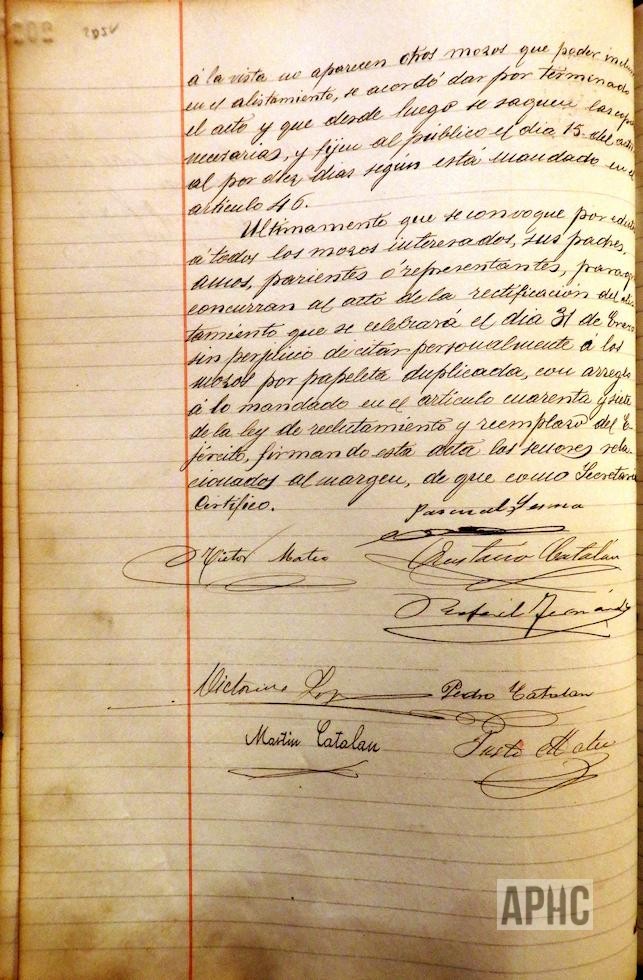 á la vista no aparecen otros mozos que poder inclu
en el alistamiento, se acordó dar por terminado
el acto y que desde luego se saquen las copias
necesarias, y fijen al público el dia 15 del
al por diez dias según está mandado en el
artículo 46.
Ultimamente que se convoque por
á todos los mozos interesados, sus padres,
amos, parientes ó representantes, para que
concurran al acto de la rectificación del alis
tamiento que se celebrará el dia 31 de Enero
sin perjuicio de citar personalmente á los
mozos por papeleta duplicada, con arreglo
á lo mandado en el artículo cuarenta y siete
de la ley de reclutamiento y reemplazo del E-
jército, firmando esta acta los señores rela-
cionados al margen, de que como Secretario
Certifico.
Pascual Lerma
Victor Mateo
Catalán
Rafael Fernánd
Victorino
Pedro Catalan
Martin Catalan
Justo Mateo
APHC